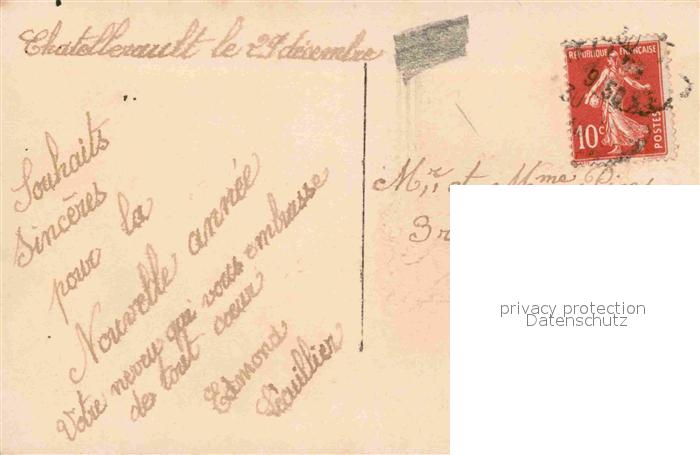 Chatellerault le 29 décembre
Souhaits
Sincères
pour la
Nouvelle année
Votre neveu qui vous embrasse
de tout cœur
Edmond
REPUBLIQUE FRANÇAISE
10c
POSTES
Mr et Mme
privacy protection
Datenschutz